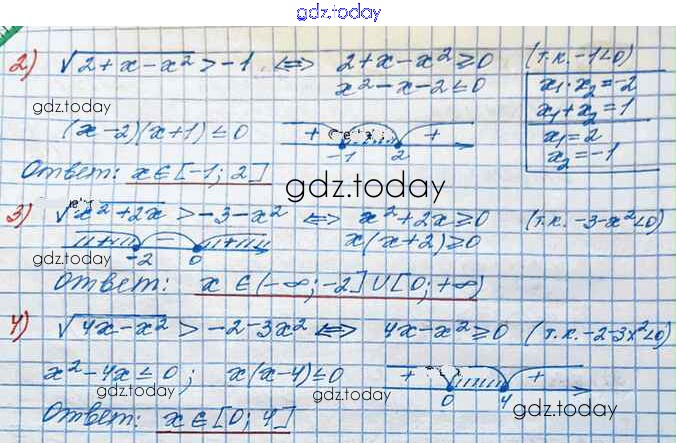 gdz.today
2) √(2+x-x²) > -1 ⇔ 2+x-x² ≥ 0 (т.к. -1<0)
x²-x-2 ≤ 0
x₁·x₂ = -2
x₁+x₂ = 1
x₁ = 2
x₂ = -1
gdz.today
(x-2)(x+1) ≤ 0 + + -1 2
Ответ: x∈[-1; 2]
gdz.today
3) √(x²+2x) > -3-x² ⇔ x²+2x ≥ 0 (т.к. -3-x²<0)
x(x+2) ≥ 0
+ - + -2 0
gdz.today
Ответ: x∈(-∞; -2]∪[0; +∞)
4) √(4x-x²) > -2-3x² ⇔ 4x-x² ≥ 0 (т.к. -2-3x²<0)
x²-4x ≤ 0; x(x-4) ≤ 0 + + 0 4
gdz.today
gdz.today
gdz.today
Ответ: x∈[0; 4]